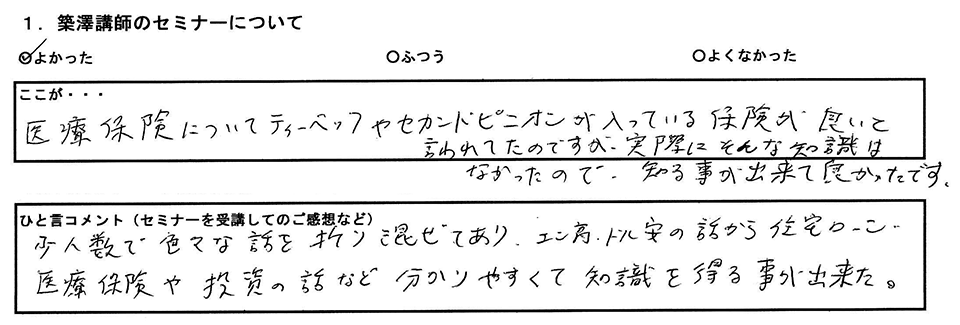 1．築澤講師のセミナーについて
よかった ○ふつう ○よくなかった
ここが・・・
医療保険についてティーペックやセカンドピニオンが入っている保険が良いと
言われてたのですが、実際にそんな知識は
なかったので、知る事が出来て良かったです。
ひと言コメント（セミナーを受講してのご感想など）
少人数で色々な話を折り混ぜてあり、エン高・ドル安の話から住宅ローン・
医療保険や投資の話など分かりやすくて知識を得る事が出来た。